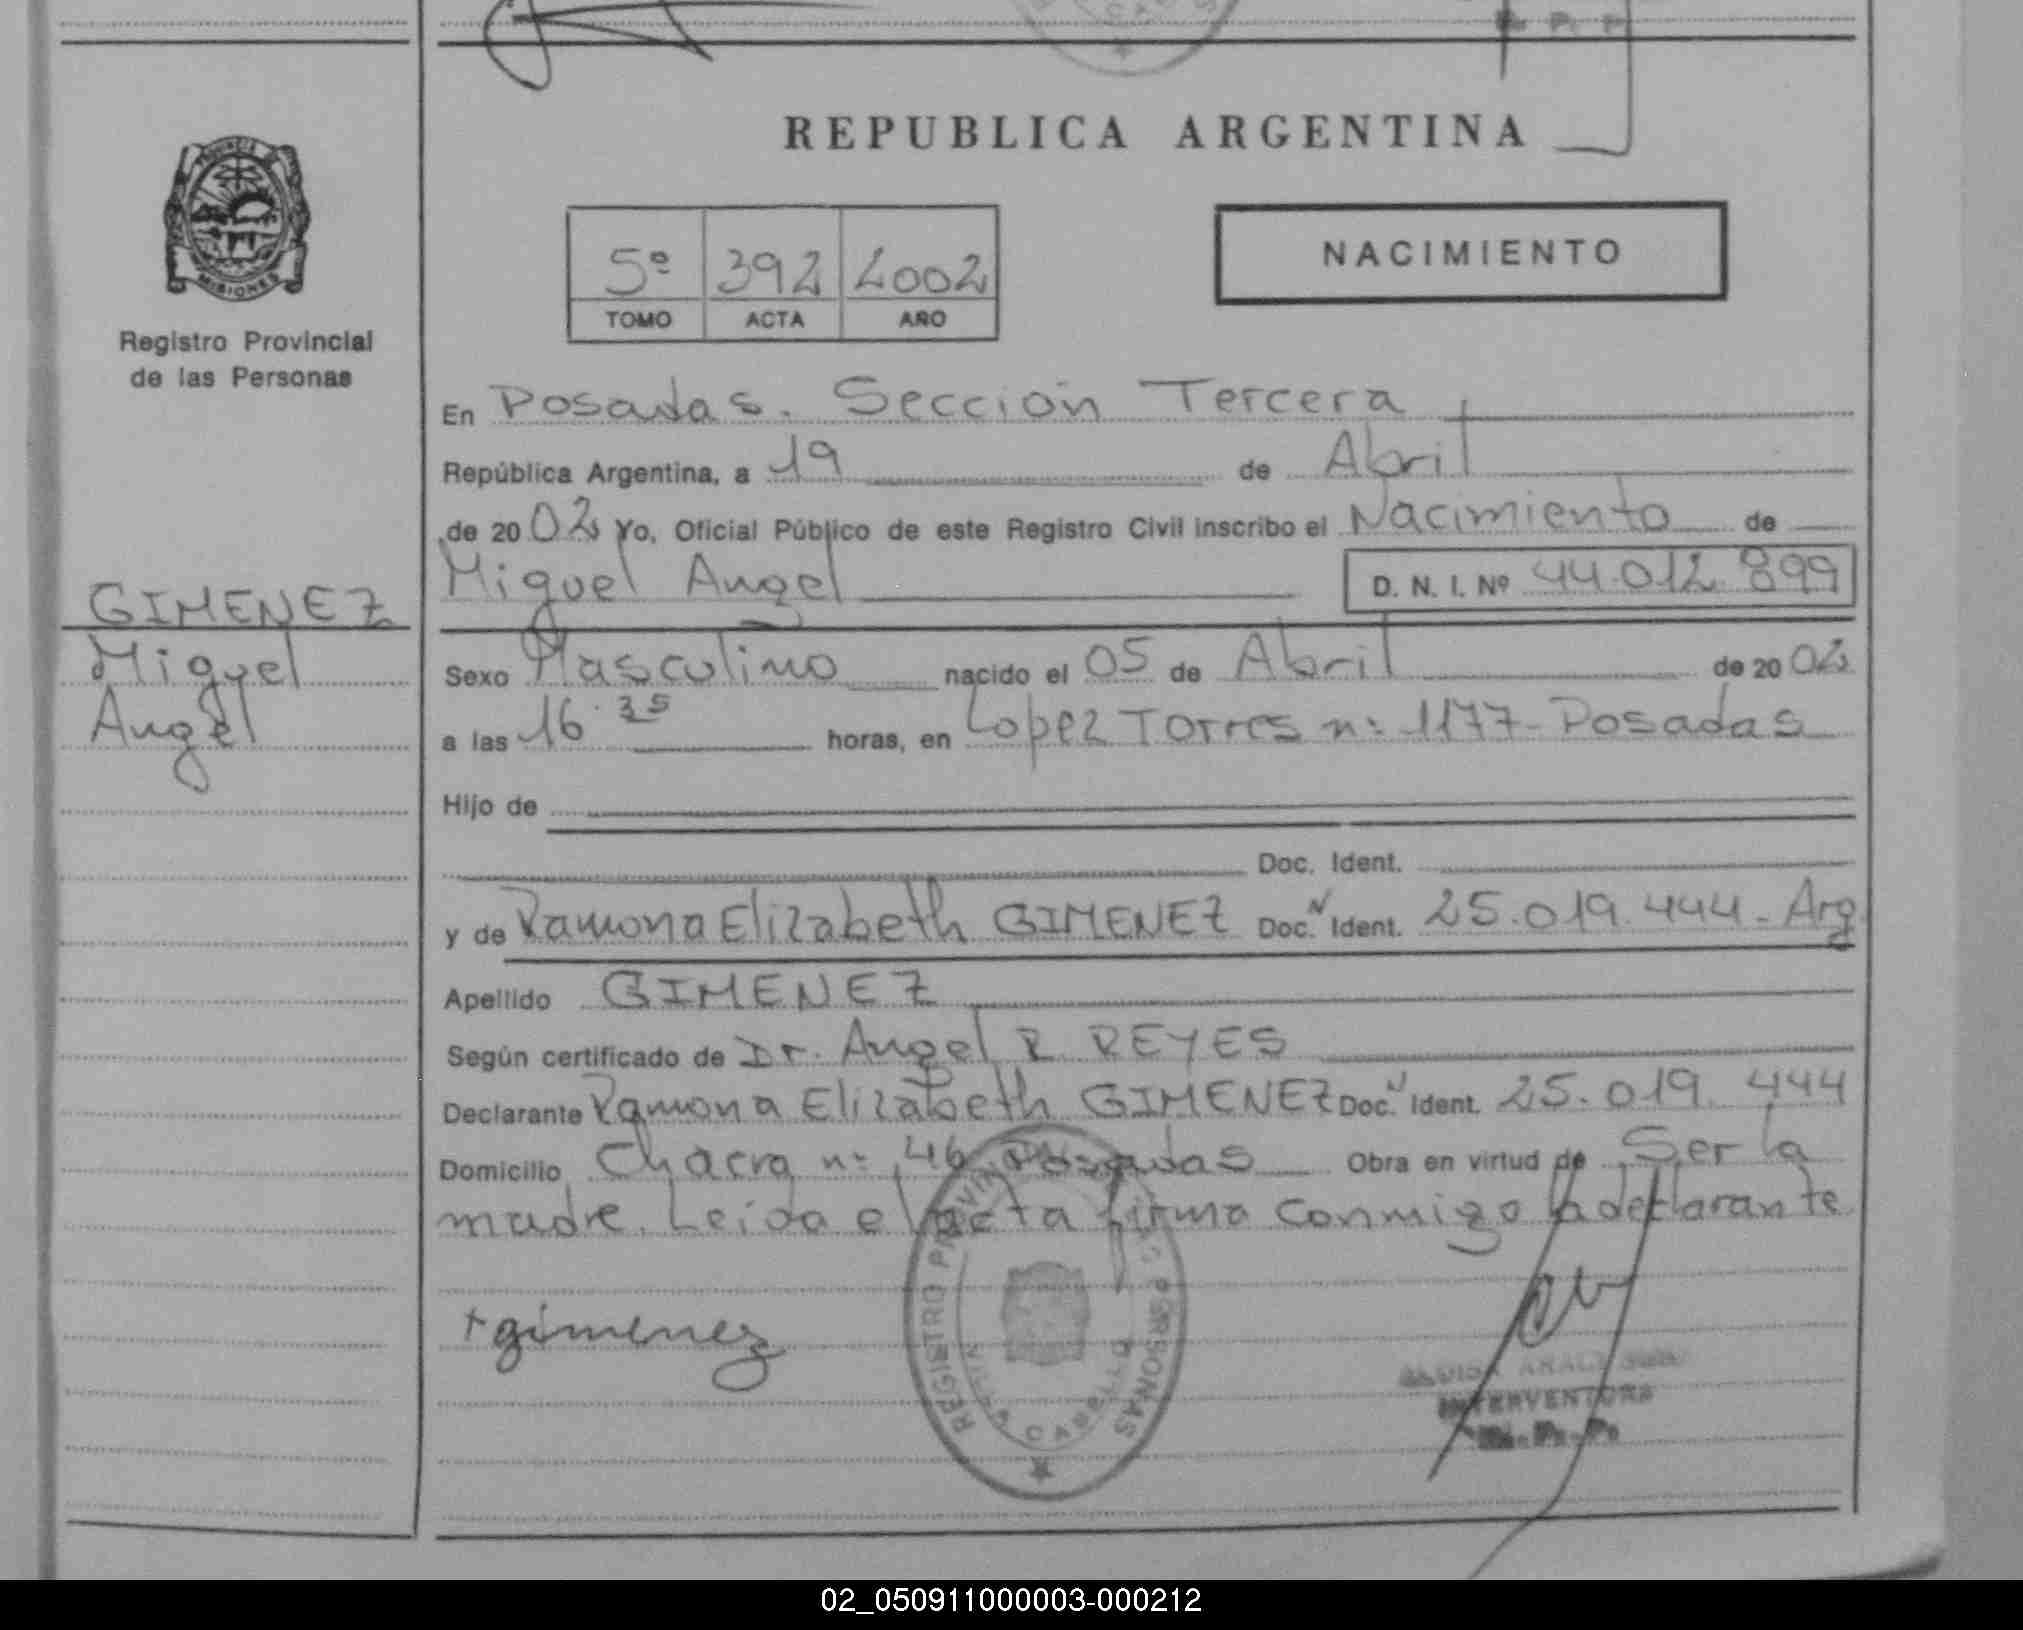 REPUBLICA ARGENTINA
PROVINCIA DE
MISIONES
Registro Provincial
de las Personas
5º 392 2002
TOMO ACTA AÑO
NACIMIENTO
En Posadas. Sección Tercera
República Argentina, a 19 de Abril
de 2002 Yo, Oficial Público de este Registro Civil inscribo el Nacimiento de
Miguel Angel D. N. I. Nº 44.012.899
GIMENEZ
Miguel
Angel
Sexo Masculino nacido el 05 de Abril de 2002
a las 16.35 horas, en Lopez Torres nº 1177 - Posadas
Hijo de
Doc. Ident.
y de Ramona Elizabeth GIMENEZ Doc. N Ident. 25.019.444 - Arg.
Apellido GIMENEZ
Según certificado de Dr. Angel R REYES
Declarante Ramona Elizabeth GIMENEZ Doc. N Ident. 25.019.444
Domicilio Chacra nº 46 Posadas Obra en virtud de Ser la
madre. Leida el acta firma conmigo la declarante
+gimenez
REGISTRO PROVINCIAL PERSONAS
INTERVENTORA
02_050911000003-000212